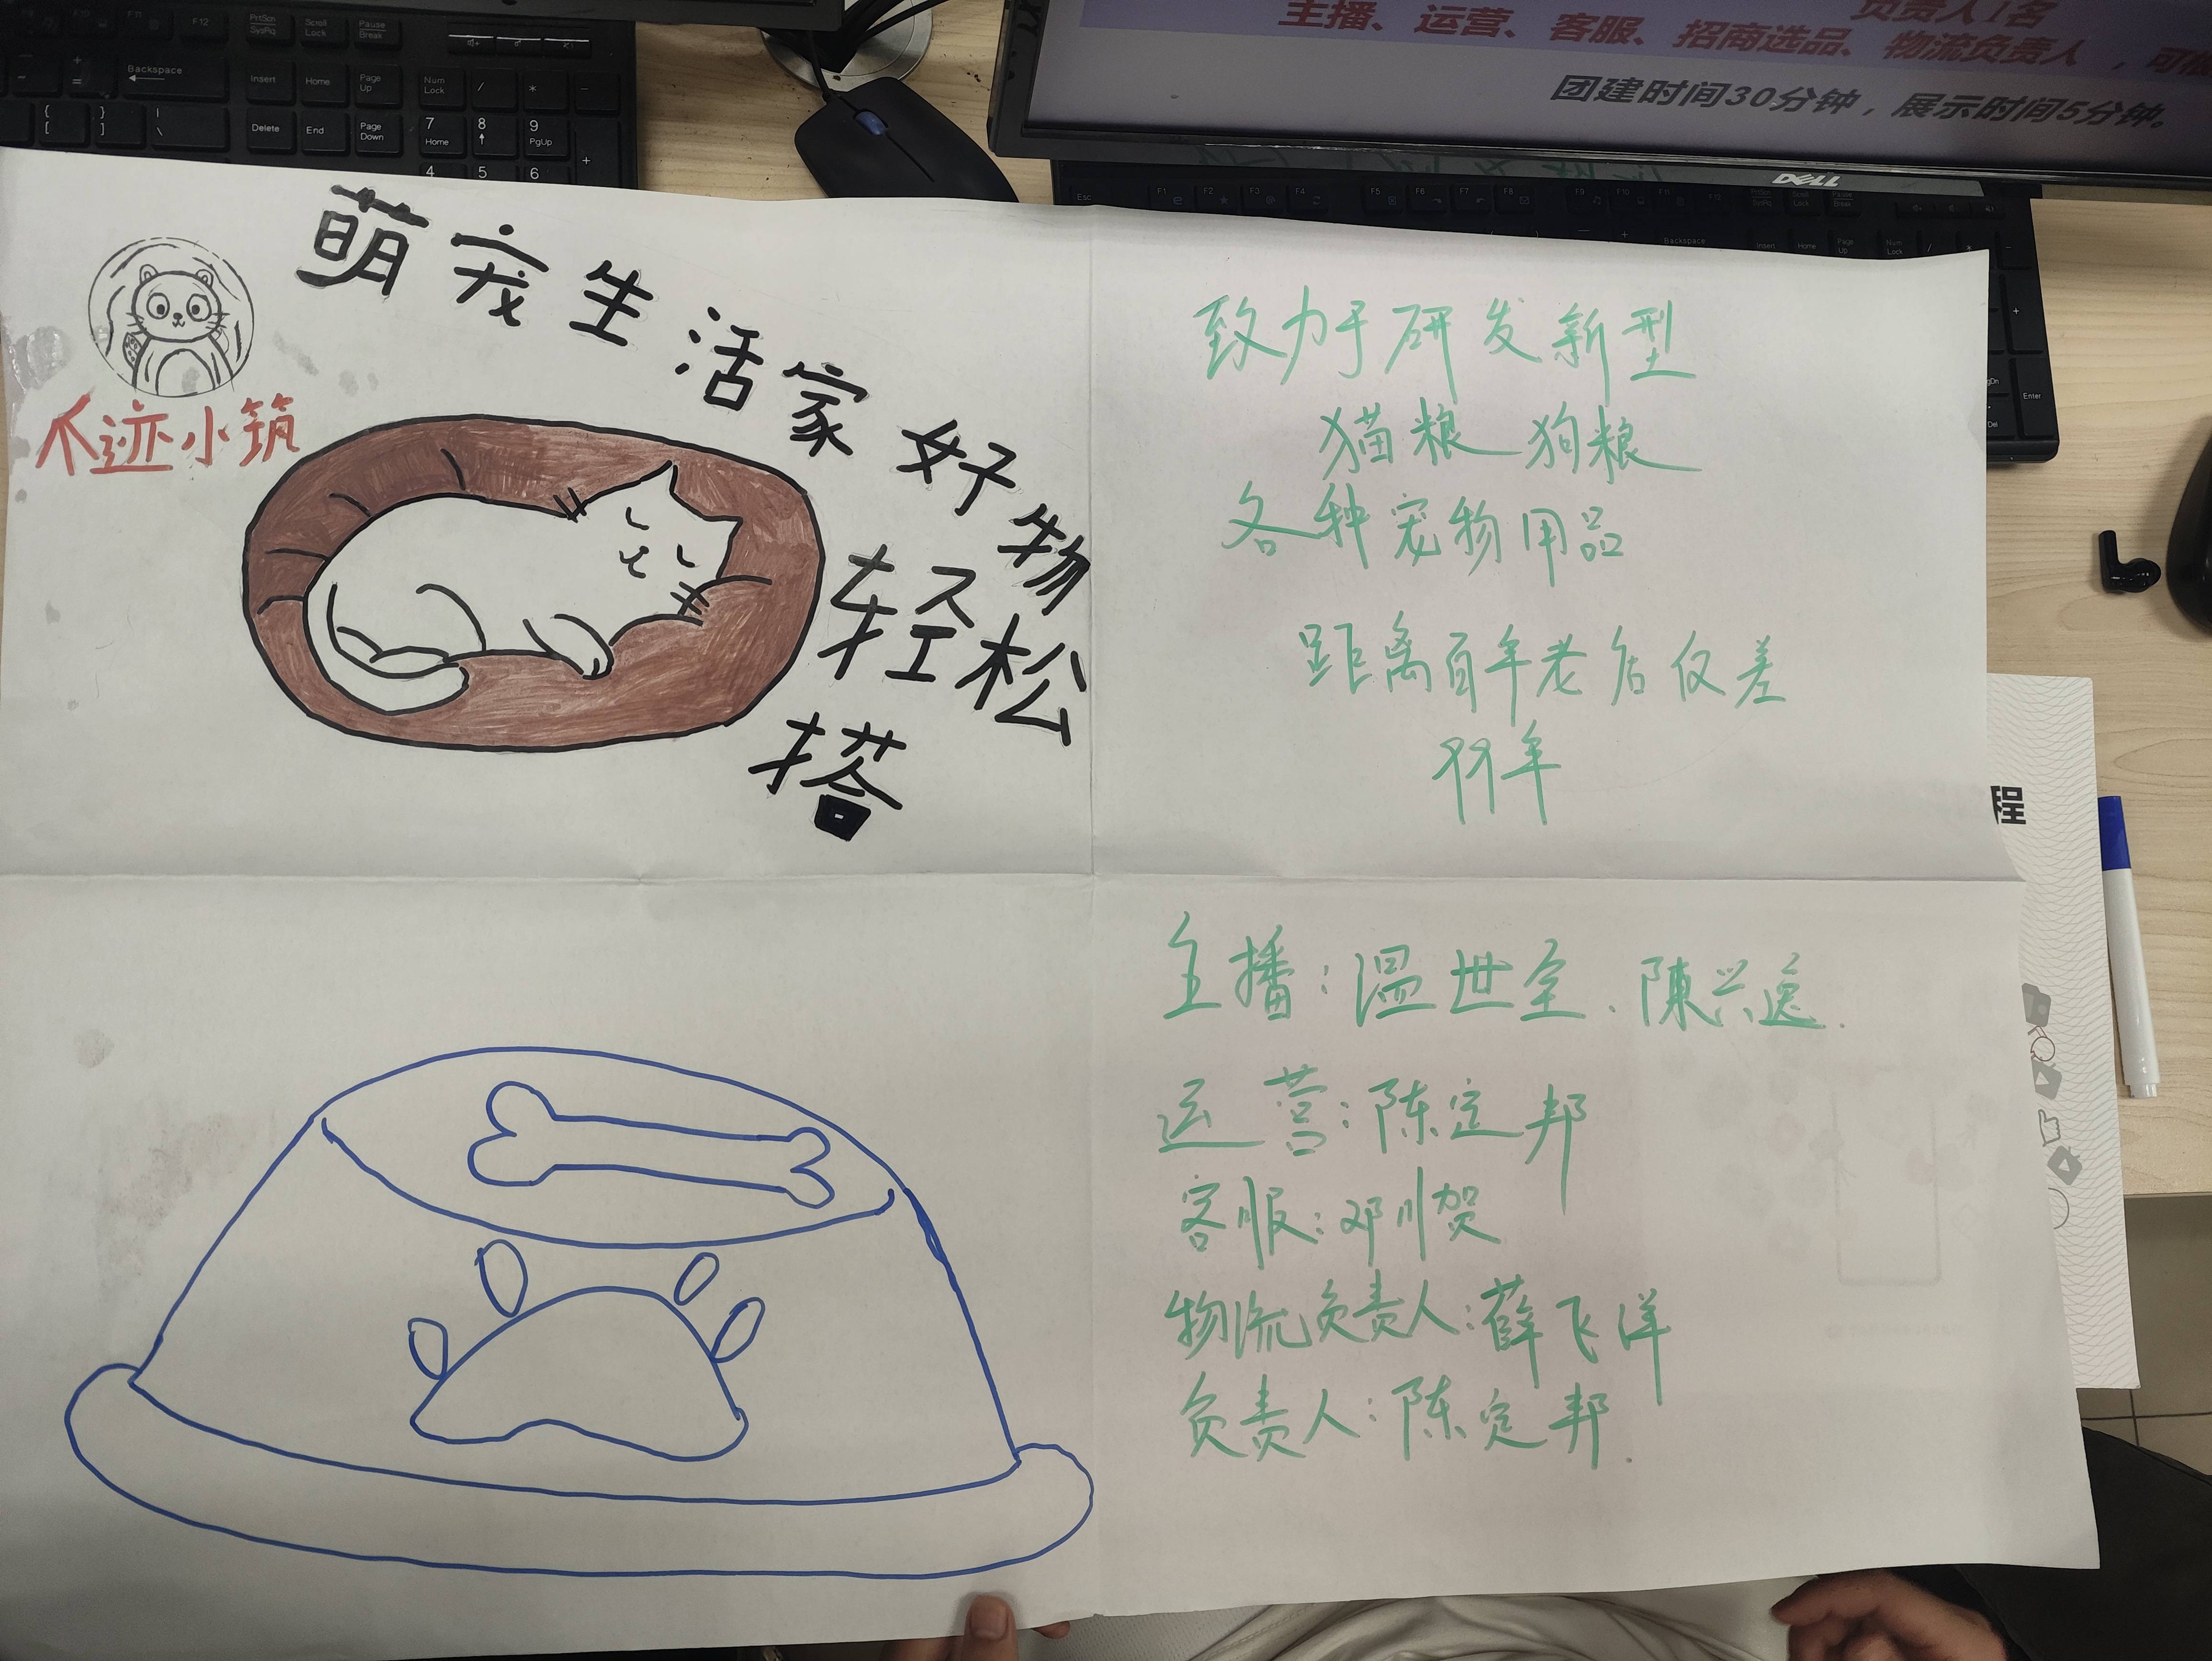 负责人1名
主播、运营、客服、招商选品、物流负责人，可
团建时间30分钟，展示时间5分钟。
DELL
萌宠生活家好物
轻松
搭
爪迹小筑
致力于研发新型
猫粮 狗粮
各种宠物用品
距离百年老店仅差
99年
主播：温世全、陳兴逸.
运营：陈定邦
客服：邓川贺
物流负责人：薛飞洋
负责人：陈定邦.
程
Backspace
Insert
Home
Page Up
Num Lock
/
*
-
Delete
End
Page Down
7 Home
8
9 PgUp
+
4
5
6
F12
PrtSc SysRq
Scroll Lock
Pause Break
Esc
F1
F2
F3
F4
F5
F6
F7
F8
Enter